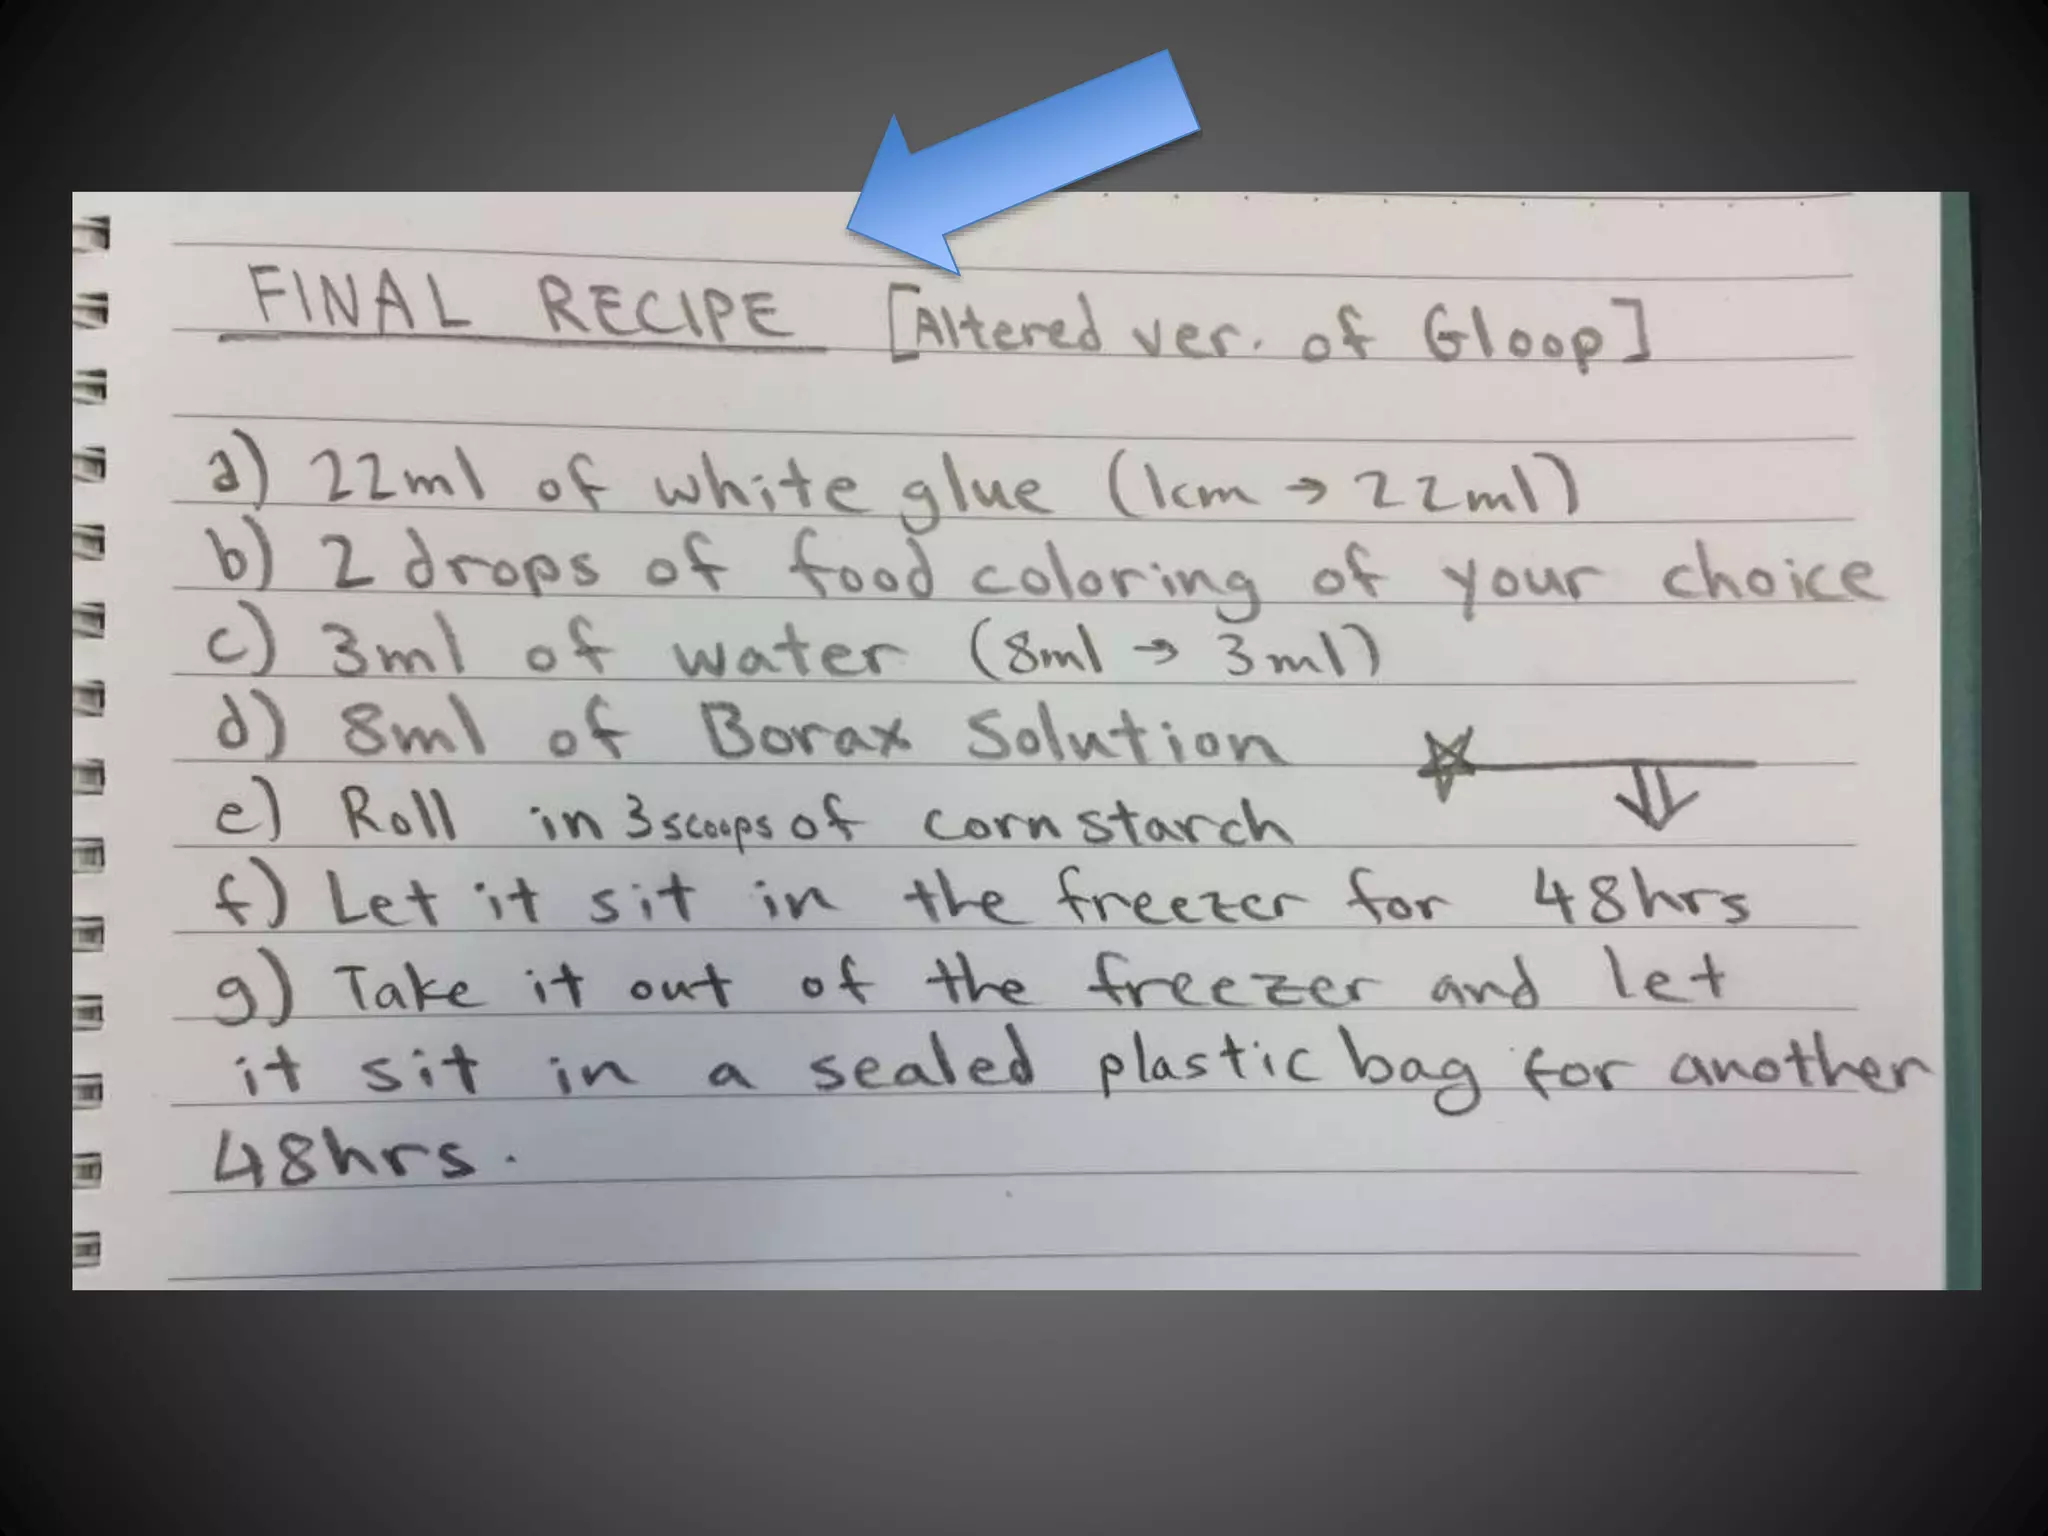 FINAL RECIPE [Altered ver. of Gloop]
a) 22ml of white glue (1cm → 22ml)
b) 2 drops of food coloring of your choice
c) 3ml of water (8ml → 3ml)
d) 8ml of Borax Solution
e) Roll in 3 scoops of corn starch
f) Let it sit in the freezer for 48hrs
g) Take it out of the freezer and let
it sit in a sealed plastic bag for another
48hrs.